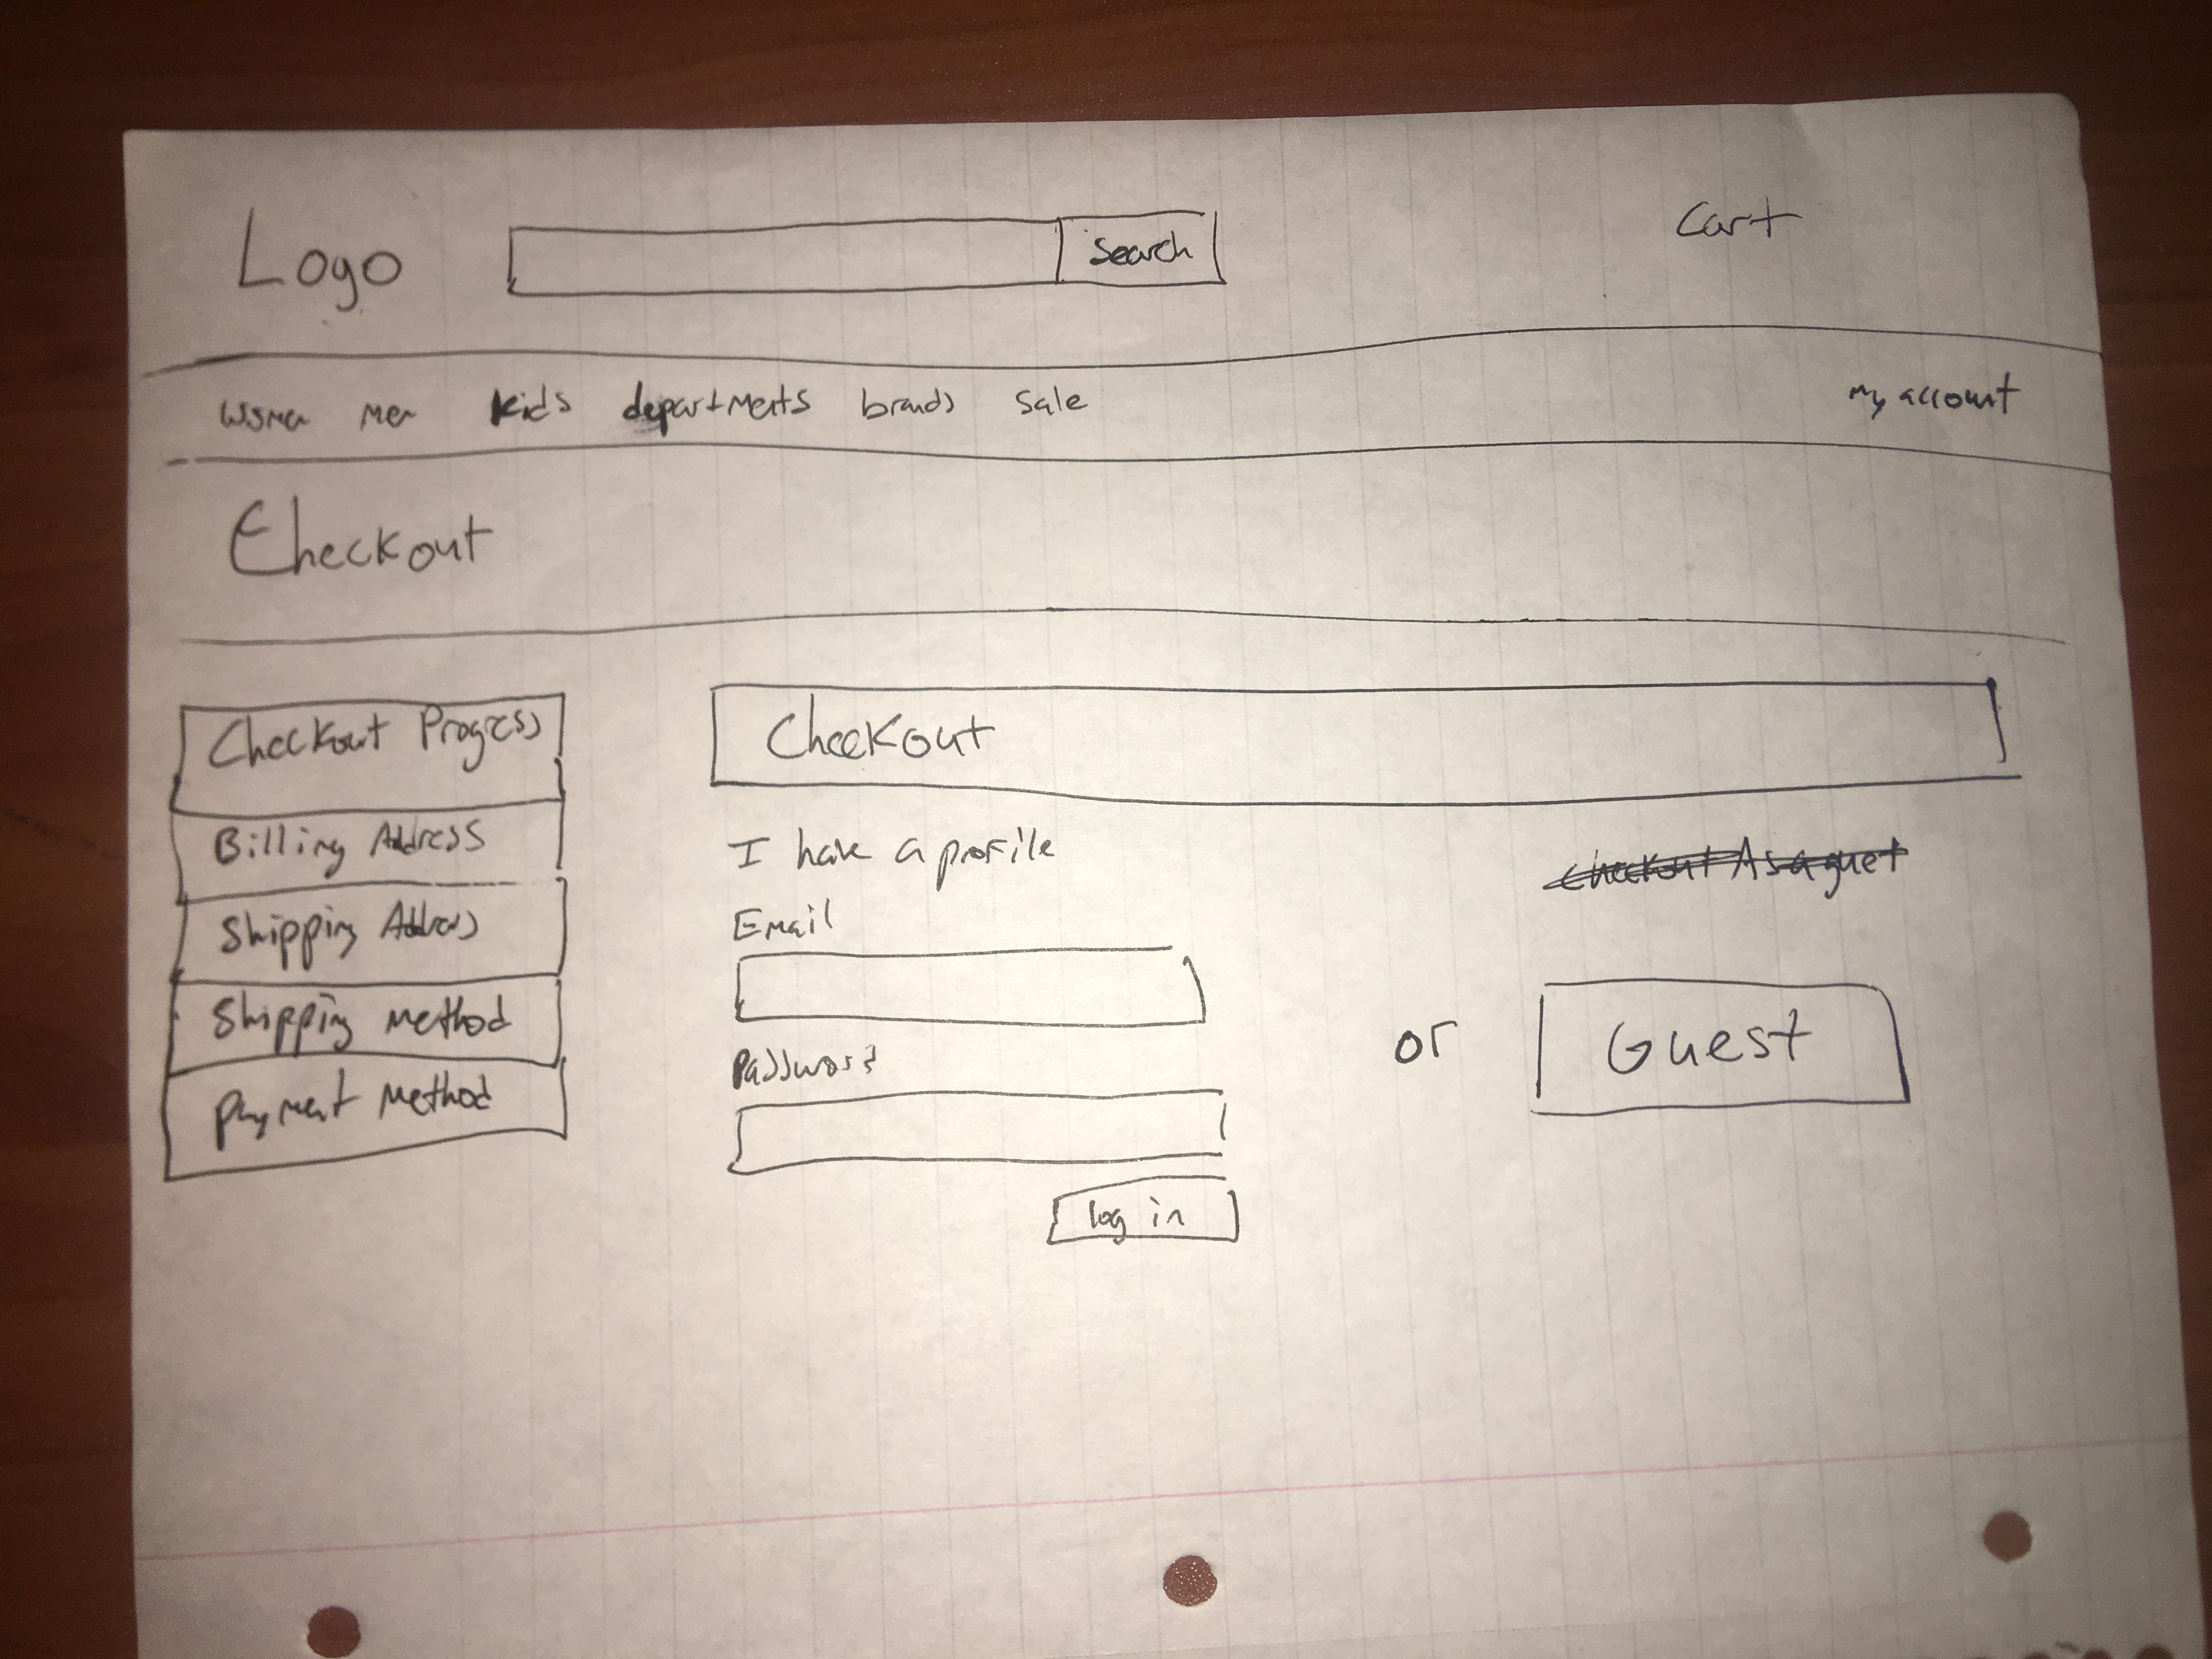 Logo
Search
Cart
women men kids departments brands sale
my account
Checkout
Checkout Progress
Billing Address
Shipping Address
Shipping Method
Payment Method
Checkout
I have a profile
Email
Password
log in
Checkout As a guet
or
Guest